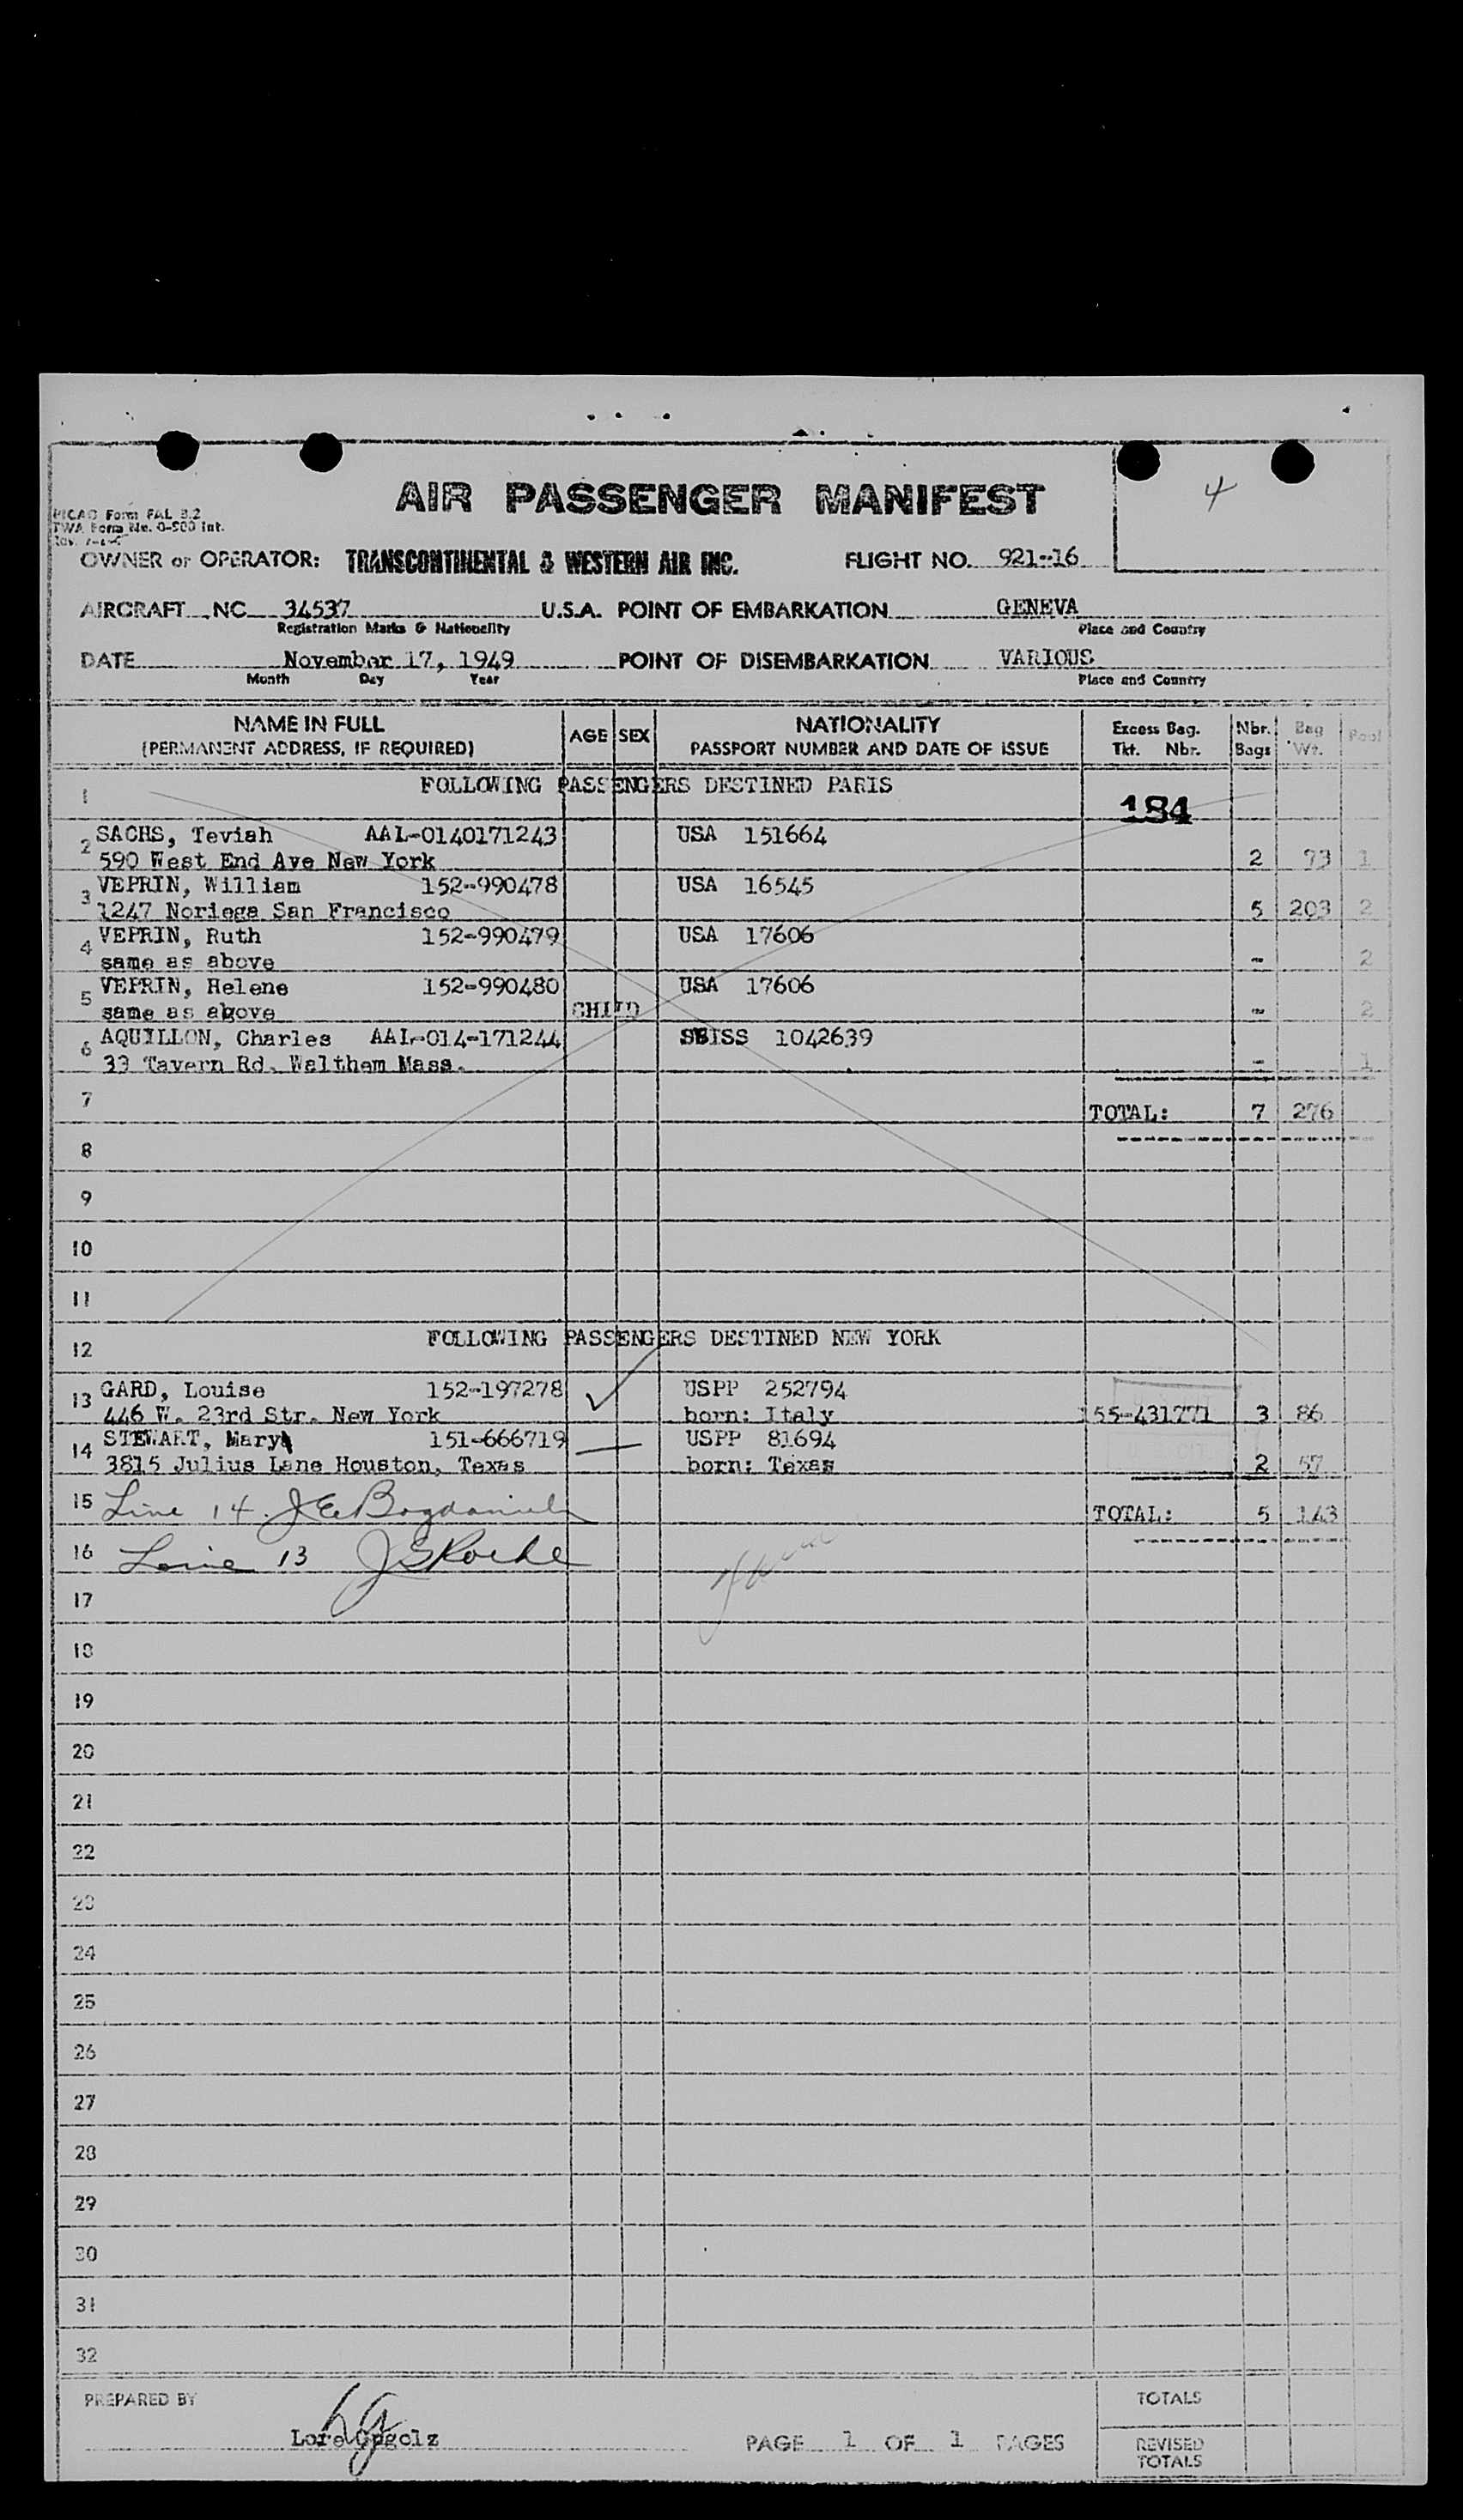 4
AIR PASSENGER MANIFEST
PICAO Form FAL 3.2
TWA Form No. 0-500 Int.
OWNER or OPERATOR: TRANSCONTINENTAL & WESTERN AIR INC. FLIGHT NO. 921-16
AIRCRAFT NC 34537 U.S.A. POINT OF EMBARKATION GENEVA
Registration Marks & Nationality Place and Country
DATE November 17, 1949 POINT OF DISEMBARKATION VARIOUS
Month Day Year Place and Country
NAME IN FULL AGE SEX NATIONALITY Excess Bag. Nbr. Bag Pool
(PERMANENT ADDRESS, IF REQUIRED) PASSPORT NUMBER AND DATE OF ISSUE Tkt. Nbr. Bags Wt.
1 FOLLOWING PASSENGERS DESTINED PARIS
184
2 SACHS, Teviah AAL-0140171243 USA 151664
590 West End Ave New York 2 73 1
3 VEPRIN, William 152-990478 USA 16545
1247 Noriega San Francisco 5 203 2
4 VEPRIN, Ruth 152-990479 USA 17606
same as above - 2
5 VEPRIN, Helene 152-990480 USA 17606
same as above CHILD - 2
6 AQUILLON, Charles AAL-014-171244 SWISS 1042639
33 Tavern Rd. Waltham Mass. - 1
7 TOTAL: 7 276
8
9
10
11
12 FOLLOWING PASSENGERS DESTINED NEW YORK
13 GARD, Louise 152-197278 USPP 252794
446 W. 23rd Str. New York born: Italy 155-431771 3 86
14 STEWART, Mary 151-666719 USPP 81694
3815 Julius Lane Houston, Texas born: Texas 2 57
15 Line 14. J E Bogdanich TOTAL: 5 143
16 Line 13 J S Roche
17
18
19
20
21
22
23
24
25
26
27
28
29
30
31
32
PREPARED BY TOTALS
Lore Opgolz PAGE 1 OF 1 PAGES REVISED
TOTALS